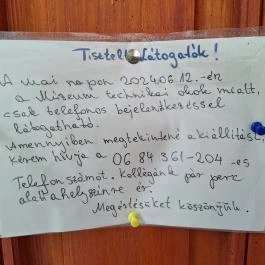 Tisztelt Látogatók!
A mai napon 2024.06.12.-én
a Múzeum technikai okok miatt,
csak telefonos bejelentkezéssel
látogatható.
Amennyiben megtekintené a kiállítást,
kérem hívja a 06 84 361-204 -es
Telefon számot. Kollégánk pár perc
alatt a helyszínre ér.
Megértésüket köszönjük.